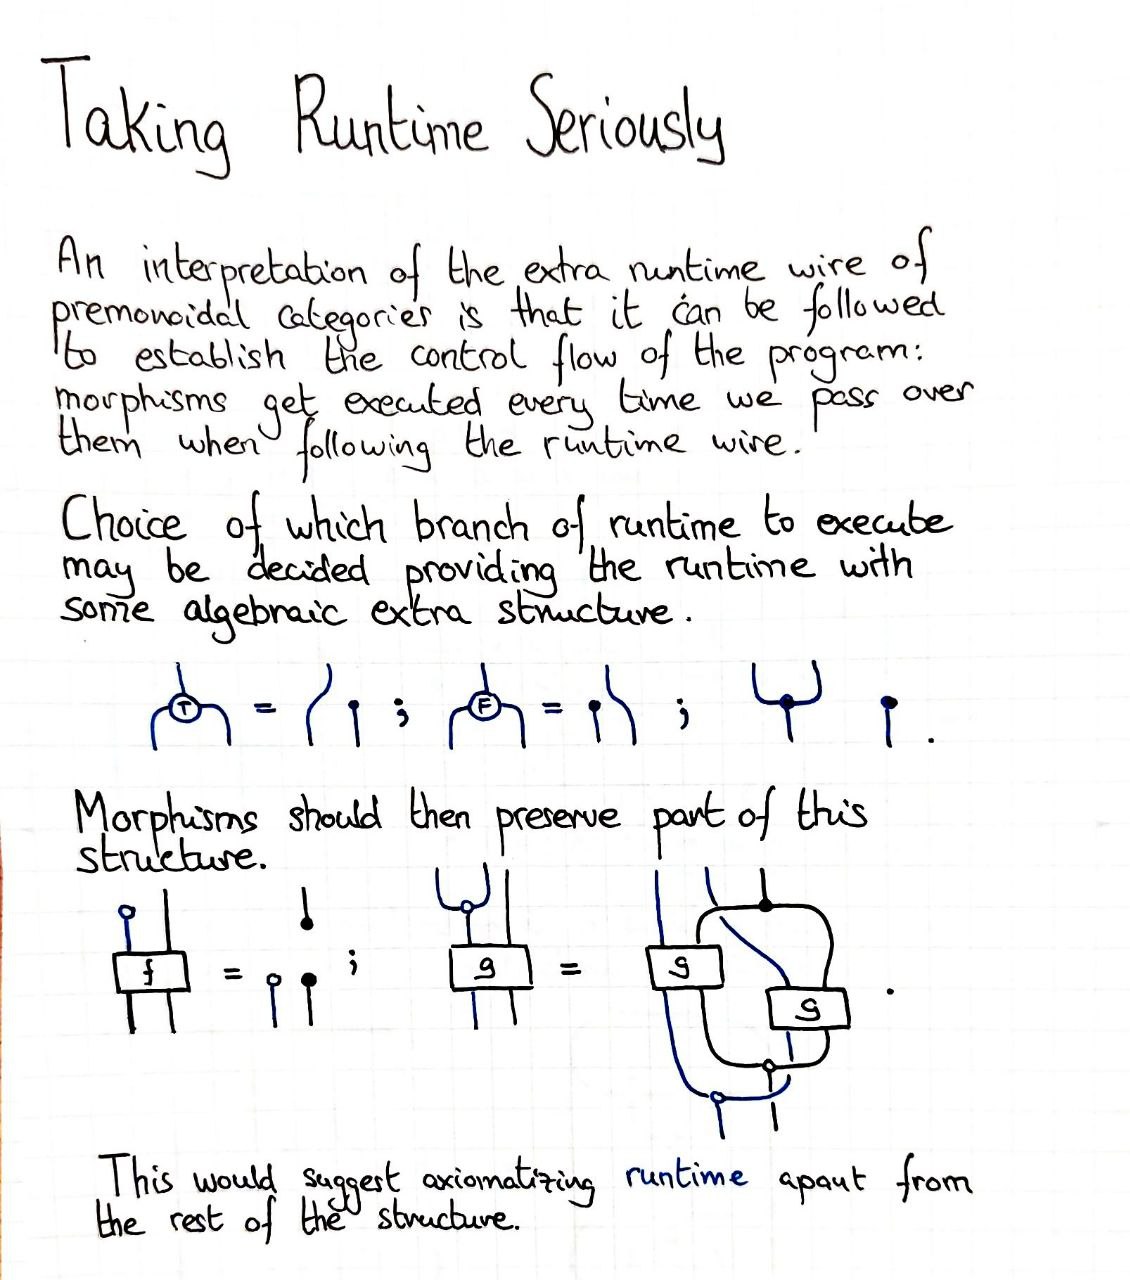 Taking Runtime Seriously
An interpretation of the extra runtime wire of
premonoidal categories is that it can be followed
to establish the control flow of the program:
morphisms get executed every time we pass over
them when following the runtime wire.
Choice of which branch of runtime to execute
may be decided providing the runtime with
some algebraic extra structure.
T = ; F = ; .
Morphisms should then preserve part of this
structure.
f = ; g = g g .
This would suggest axiomatizing runtime apart from
the rest of the structure.